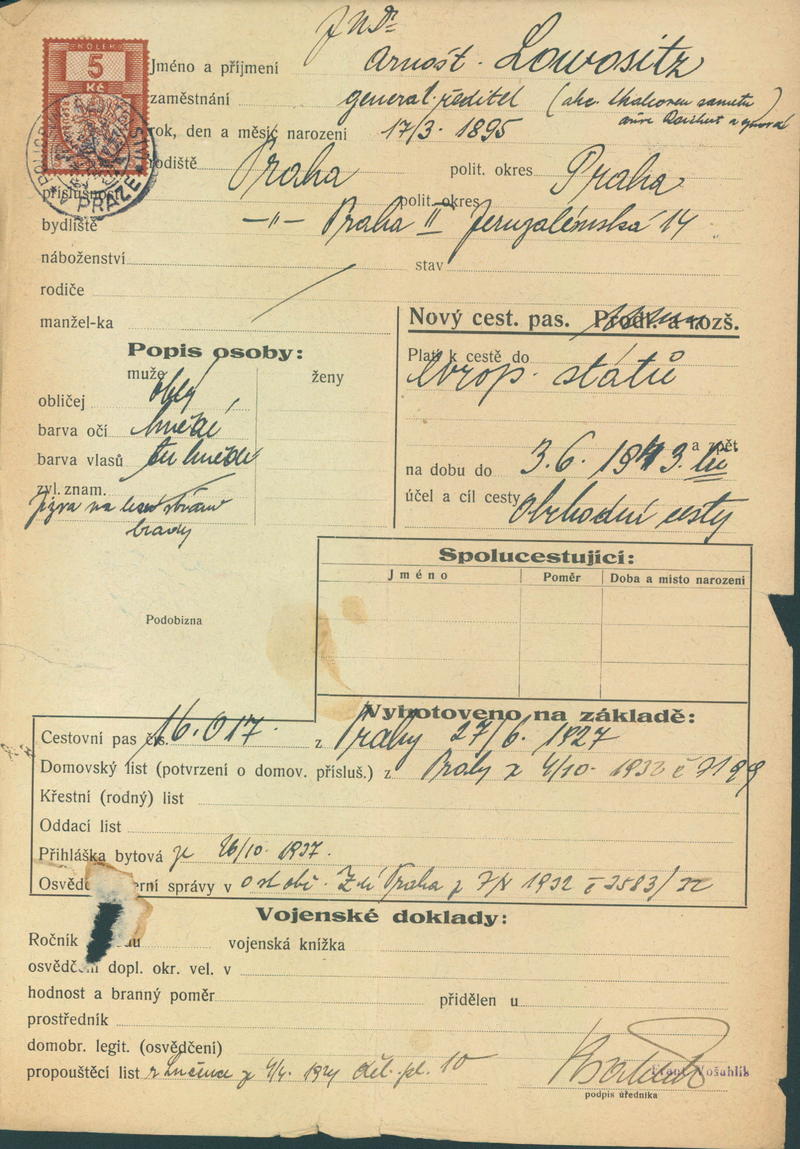 JUDr
KOLEK
5
Kč
V PRAZE
Jméno a příjmení Arnošt Lowositz
zaměstnání general. ředitel
rok, den a měsíc narození 17/3. 1895
rodiště Praha polit. okres Praha
příslušnost polit. okres
bydliště —"— Praha II Jeruzalémská 14
náboženství stav
rodiče
manžel-ka
Popis osoby:
muže ženy
obličej oblý
barva očí hnědé
barva vlasů tm hnědé
zvl. znam.
jizva na levé straně
brady
Nový cest. pas. Prodl. a rozš.
Platí k cestě do
Evrop. států
a zpět
na dobu do 3. 6. 1943.
účel a cíl cesty Obchodní cesty
Spolucestující:
Jméno Poměr Doba a místo narození
Podobizna
Vyhotoveno na základě:
Cestovní pas čís. 16.017. z Prahy 27/6. 1927
Domovský list (potvrzení o domov. přísluš.) z Prahy z 4/10. 1932 č 7199
Křestní (rodný) list
Oddací list
Přihláška bytová z 26/10. 1937.
Osvědč erní správy v Praha z 1932 č 2583/
Vojenské doklady:
Ročník vojenská knížka
osvědčení dopl. okr. vel. v
hodnost a branný poměr přidělen u
prostředník
domobr. legit. (osvědčení)
propouštěcí list z Lučence z 1921 děl. pl. 10
podpis úředníka